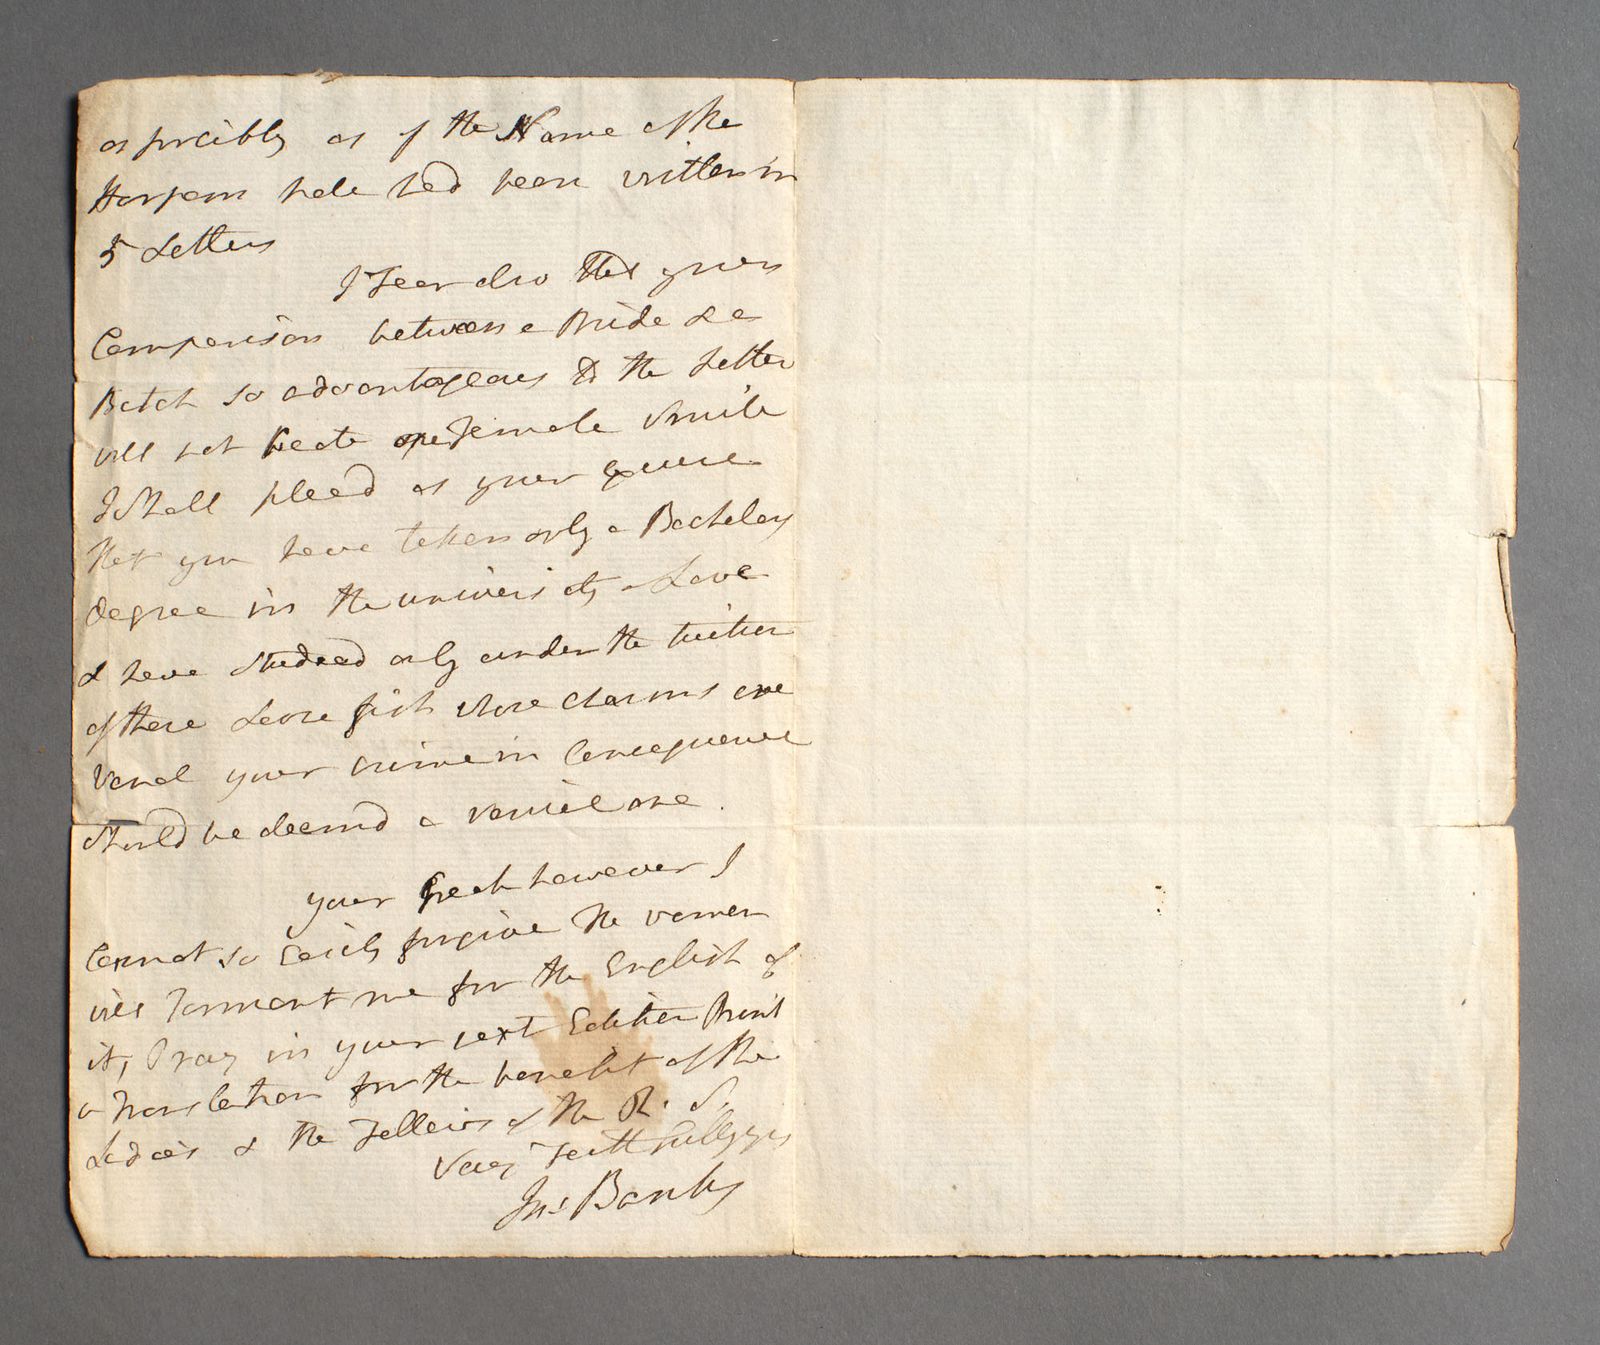 as forcibly as if the Name of the
Harpam hole had been written in
5 Letters
I Fear also that your
Comparison between a Bride & a
Batch so advantageous to the Latter
will not create one Female Smile
I Shall plead as your excuse
that you have taken only a Bachelors
degree in the university of Love
& have Studied only under the tuition
of those whose charms are
Venal your crime in Consequence
Should be deemd a venial one.
your Greek however I
Cannot so Easily forgive the women
will Torment me for the English of
it, Pray in your next Edition Print
a translation for the benefit of the
Ladies & the Fellows of the R. S.
Very Faithfully yrs
Jos: Banks